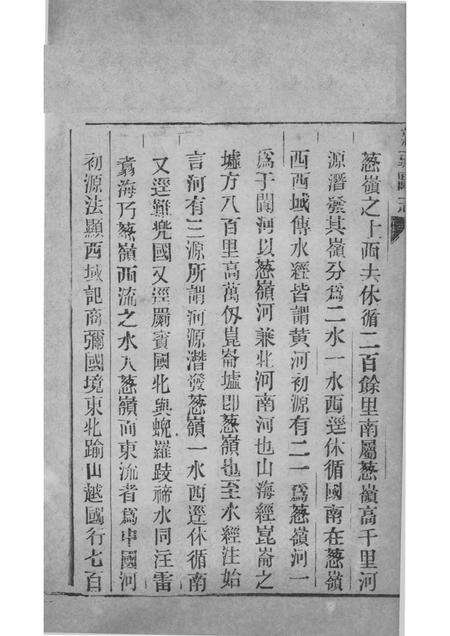 葱嶺之上西去休循二百餘里南屬葱嶺高千里河
源潛發其嶺分爲二水一水西逕休循國南在葱嶺
西西域傳水經皆謂黄河初源有二一爲葱嶺河一
爲于闐河以葱嶺河兼北河南河也山海經崑崙之
墟方八百里高萬仭崑崙墟即葱嶺也至水經注始
言河有三源所謂河源潛發葱嶺一水西逕休循南
又逕難兜國又逕罽賓國北與蜺羅跂褅水同注雷
翥海乃葱嶺西流之水入葱嶺而東流者爲中國河
初源法顯西域記商彌國境東北踰山越國行七百